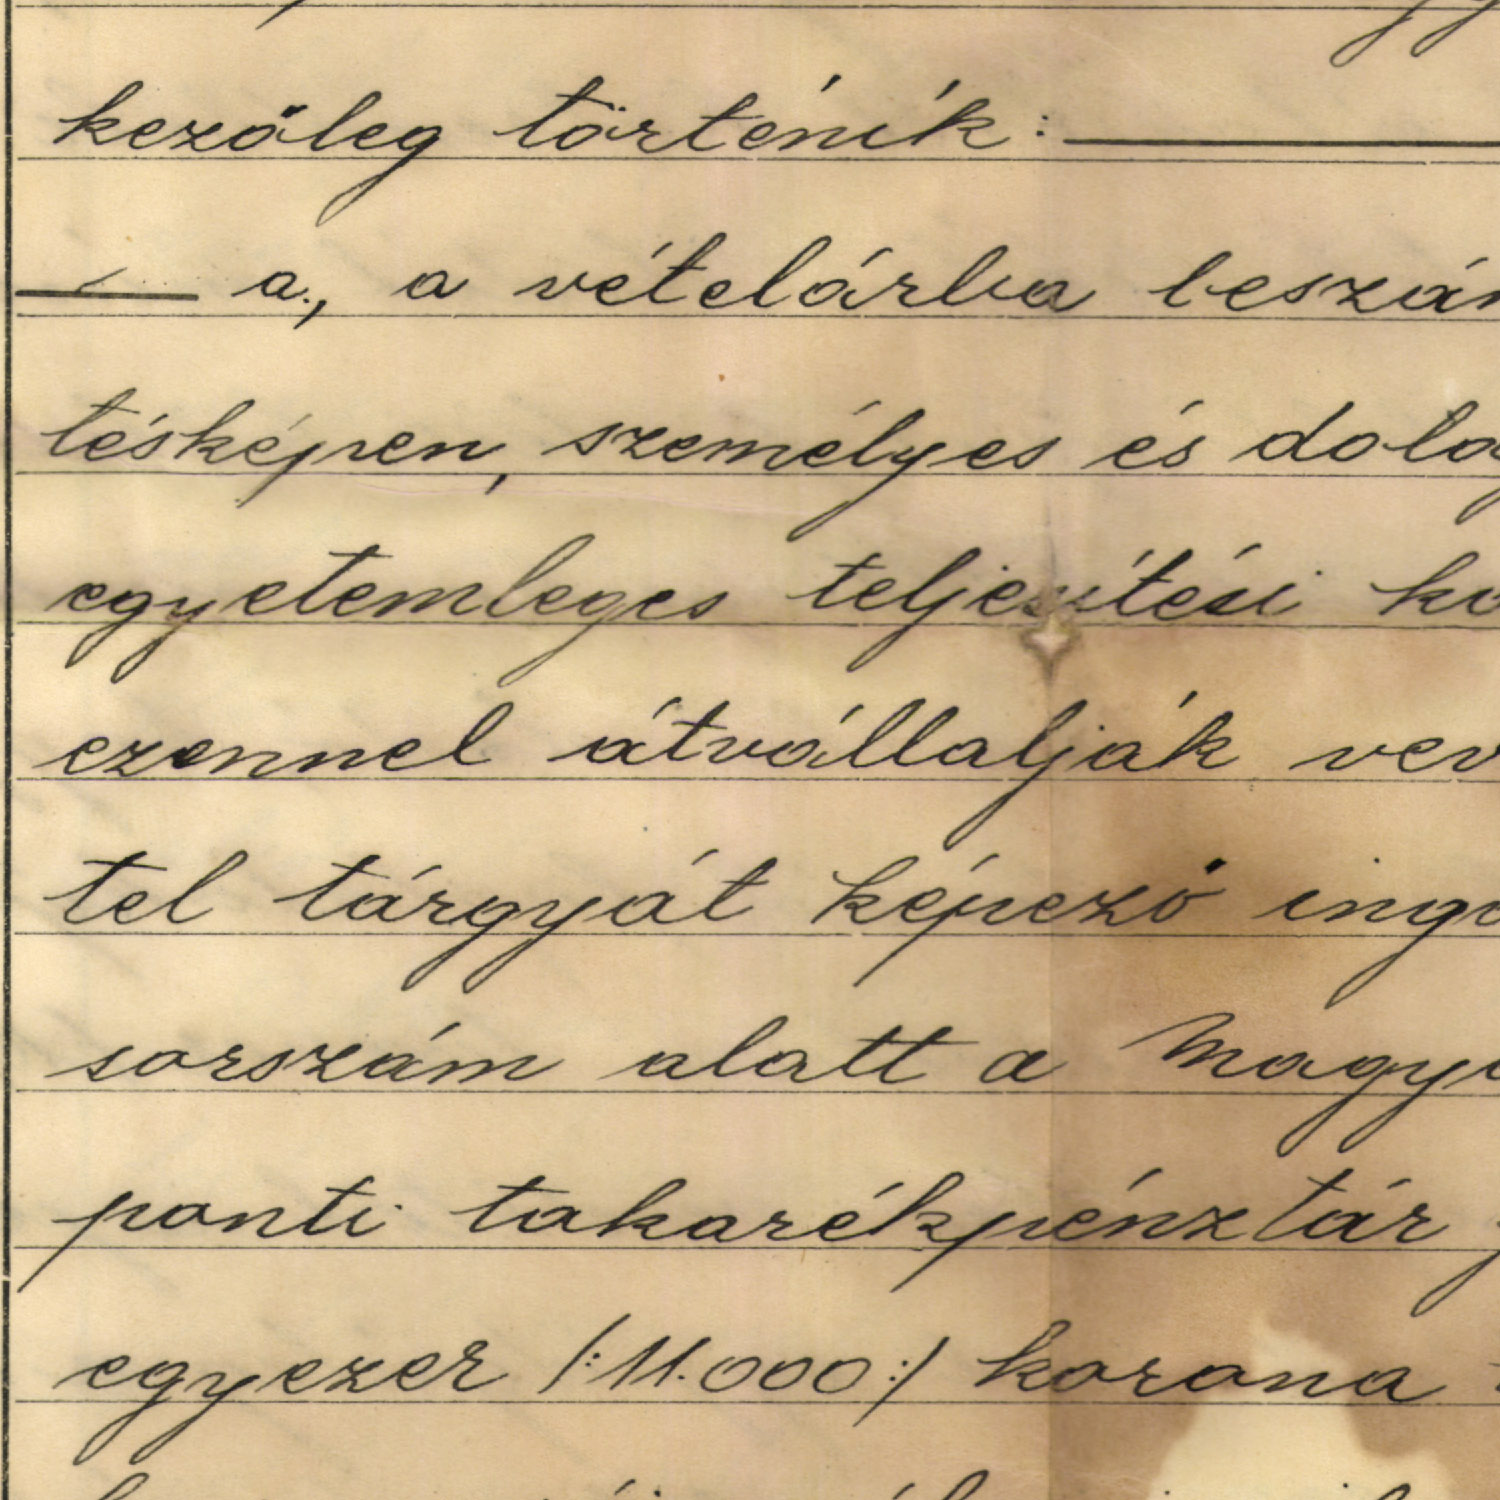 kezőleg történik:
a., a vételárba beszám
tésképen, személyes és dolog
egyetemleges teljesítési kö
ezennel átvállalják vev
tel tárgyát képező ingo
sorszám alatt a Magya
ponti takarékpénztár
egyezer /:11.000:/ korona